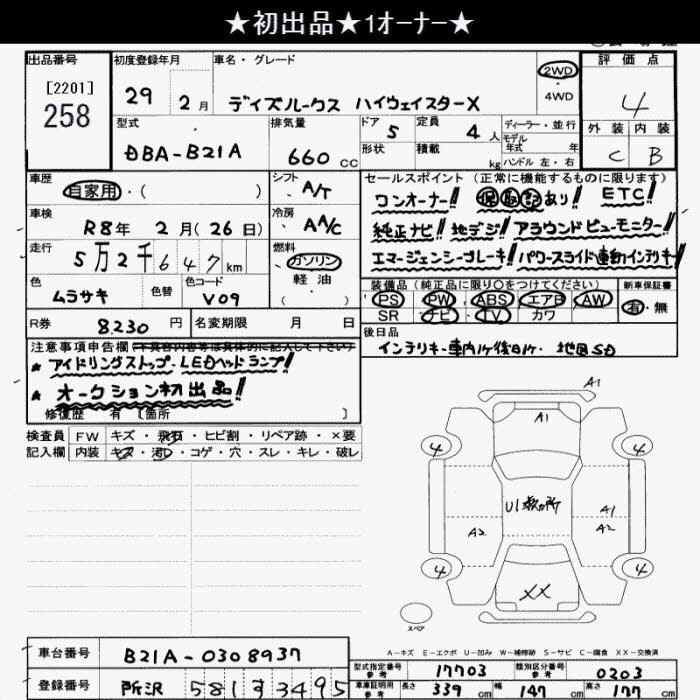 ★初出品★1オーナー★
出品番号 初度登録年月 車名・グレード 2WD 評価点
[2201] 29 2月 デイズルークス ハイウェイスターX ・4WD 4
258 型式 排気量 ドア 定員 ディーラー・並行 外装 内装
DBA-B21A 660cc 5 4人 モデル年式 年 C B
形状 積載 kg ハンドル 左・右
車歴 シフト セールスポイント (正常に機能するものに限ります)
自家用・( ) A/T ワンオーナー!! 保取記あり!! ETC!!
車検 冷房 純正ナビ!! 地デジ!! アラウンドビューモニター!!
R8年 2月(26日) A/C エマージェンシーブレーキ!! パワースライド連動インテリキー!!
走行 5万2千647km 燃料 ガソリン 軽油 ( )
装備品(純正品に限り○をつけてください) 新車保証書
色 色替 色コード PS PW ABS エアB AW 有・無
ムラサキ V09 SR ナビ TV カワ
R券 8230円 名変期限 月 日 後日品
インテリキー車内1ケ後日1ケ・地図SD
注意事項申告欄(不具合内容等は具体的に記入して下さい)
★アイドリングストップ・LEDヘッドランプ!!
★オークション初出品!!
修復歴 有 [箇所 ]
検査員 FW キズ・飛石・ヒビ割・リペア跡・×要
記入欄 内装 キズ・汚レ・コゲ・穴・スレ・キレ・破レ
A1
A1
4 4
U1数ヵ所
A1
A2 A2
4 4
XX
スペア
A-キズ E-エクボ U-凹み W-補修跡 S-サビ C-腐食 XX-交換済
車台番号 B21A-0308937 型式指定番号 参考 17703 類別区分番号 参考 0203
登録番号 所沢 581す3495 車庫証明用 参考 長さ 339cm 幅 147cm 高さ 177cm